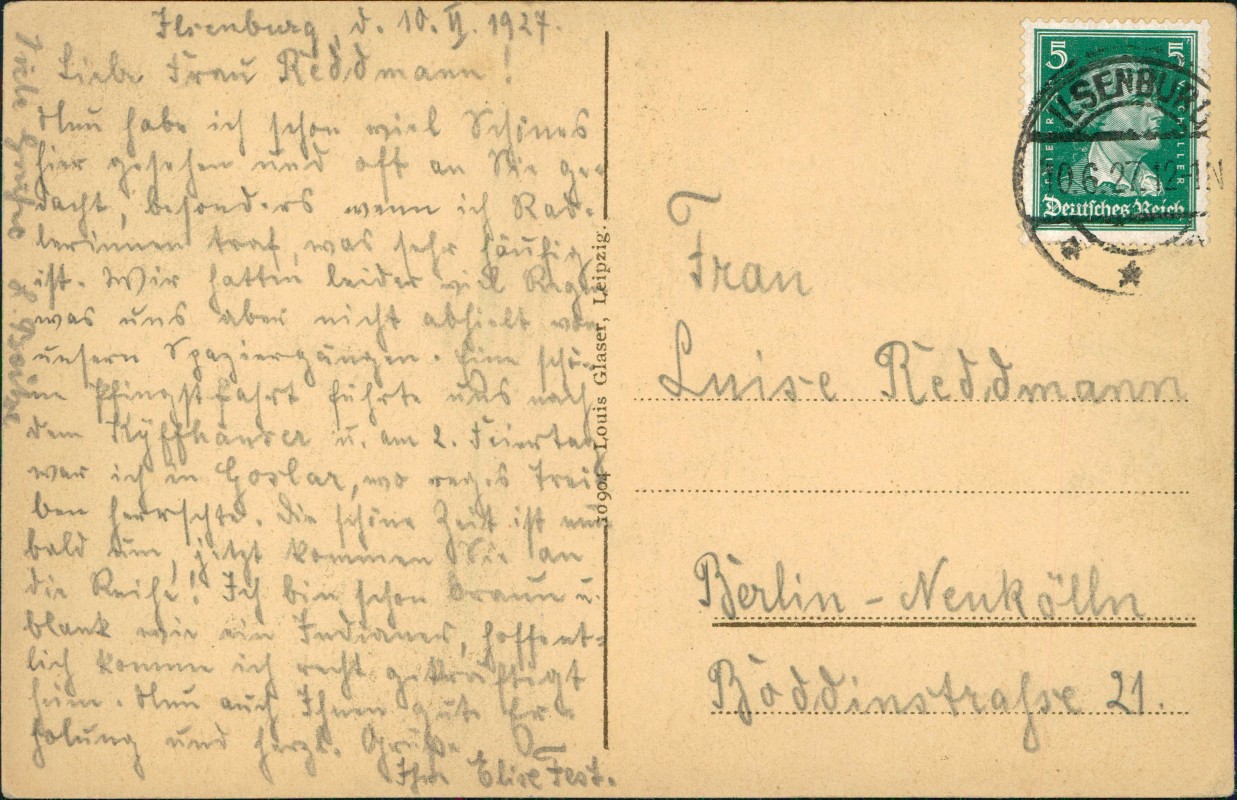 Ilsenburg, d. 10. VI. 1927.
Liebe Frau Reddmann!
Nun habe ich schon viel Schönes
hier gesehen und oft an Sie ge-
dacht, besonders wenn ich Rad-
lerinnen traf, was sehr häufig
ist. Wir hatten leider viel Regen
was uns aber nicht abhielt von
unsern Spaziergängen. Eine schö-
ne Pfingstfahrt führte uns nach
dem Kyffhäuser u. am 2. Feiertag
war ich in Goslar, wo reges Trei-
ben herrschte. Die schöne Zeit ist nun
bald um, jetzt kommen Sie an
die Reihe! Ich bin schon braun u.
blank wie ein Indianer, hoffent-
lich komme ich recht gekräftigt
heim. Nun auch Ihnen gute Er-
holung und herzl. Grüße
Ihre Elise Fest.
Viele Grüße
10904 Louis Glaser, Leipzig.
5 5
Deutsches Reich
ILSENBURG
10.6.27.12-1N
Frau
Luise Reddmann
Berlin - Neukölln
Boddinstraße 21.